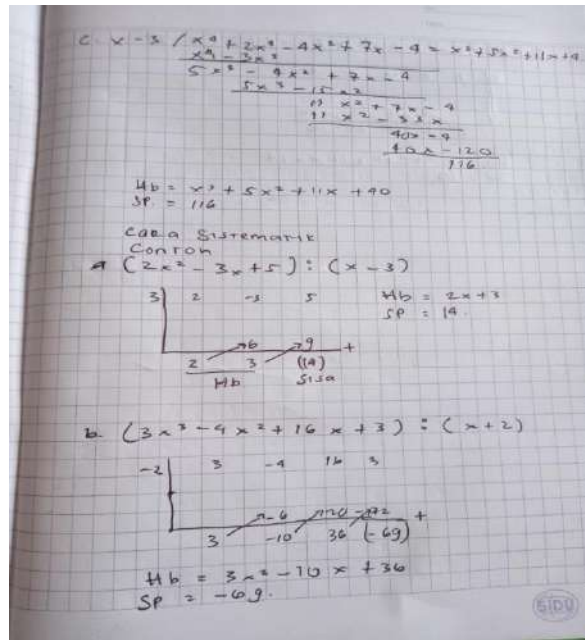 c. x-3 / x⁴ + 2x³ - 4x² + 7x - 4 = x³ + 5x² + 11x + 4
x⁴ - 3x³
5x³ - 4x² + 7x - 4
5x³ - 15x²
11x² + 7x - 4
11x² - 33x
40x - 4
40x - 120
116
Hb = x³ + 5x² + 11x + 40
SP. = 116
Cara Sistematik
Contoh
a (2x² - 3x + 5) : (x - 3)
3 2 -3 5 Hb = 2x + 3
SP = 14.
6 9 +
2 3 (14)
Hb Sisa
b. (3x³ - 4x² + 16x + 3) : (x + 2)
-2 3 -4 16 3
-6 20 -72 +
3 -10 36 (-69)
Hb = 3x² - 10x + 36
SP = -69.
SIDU